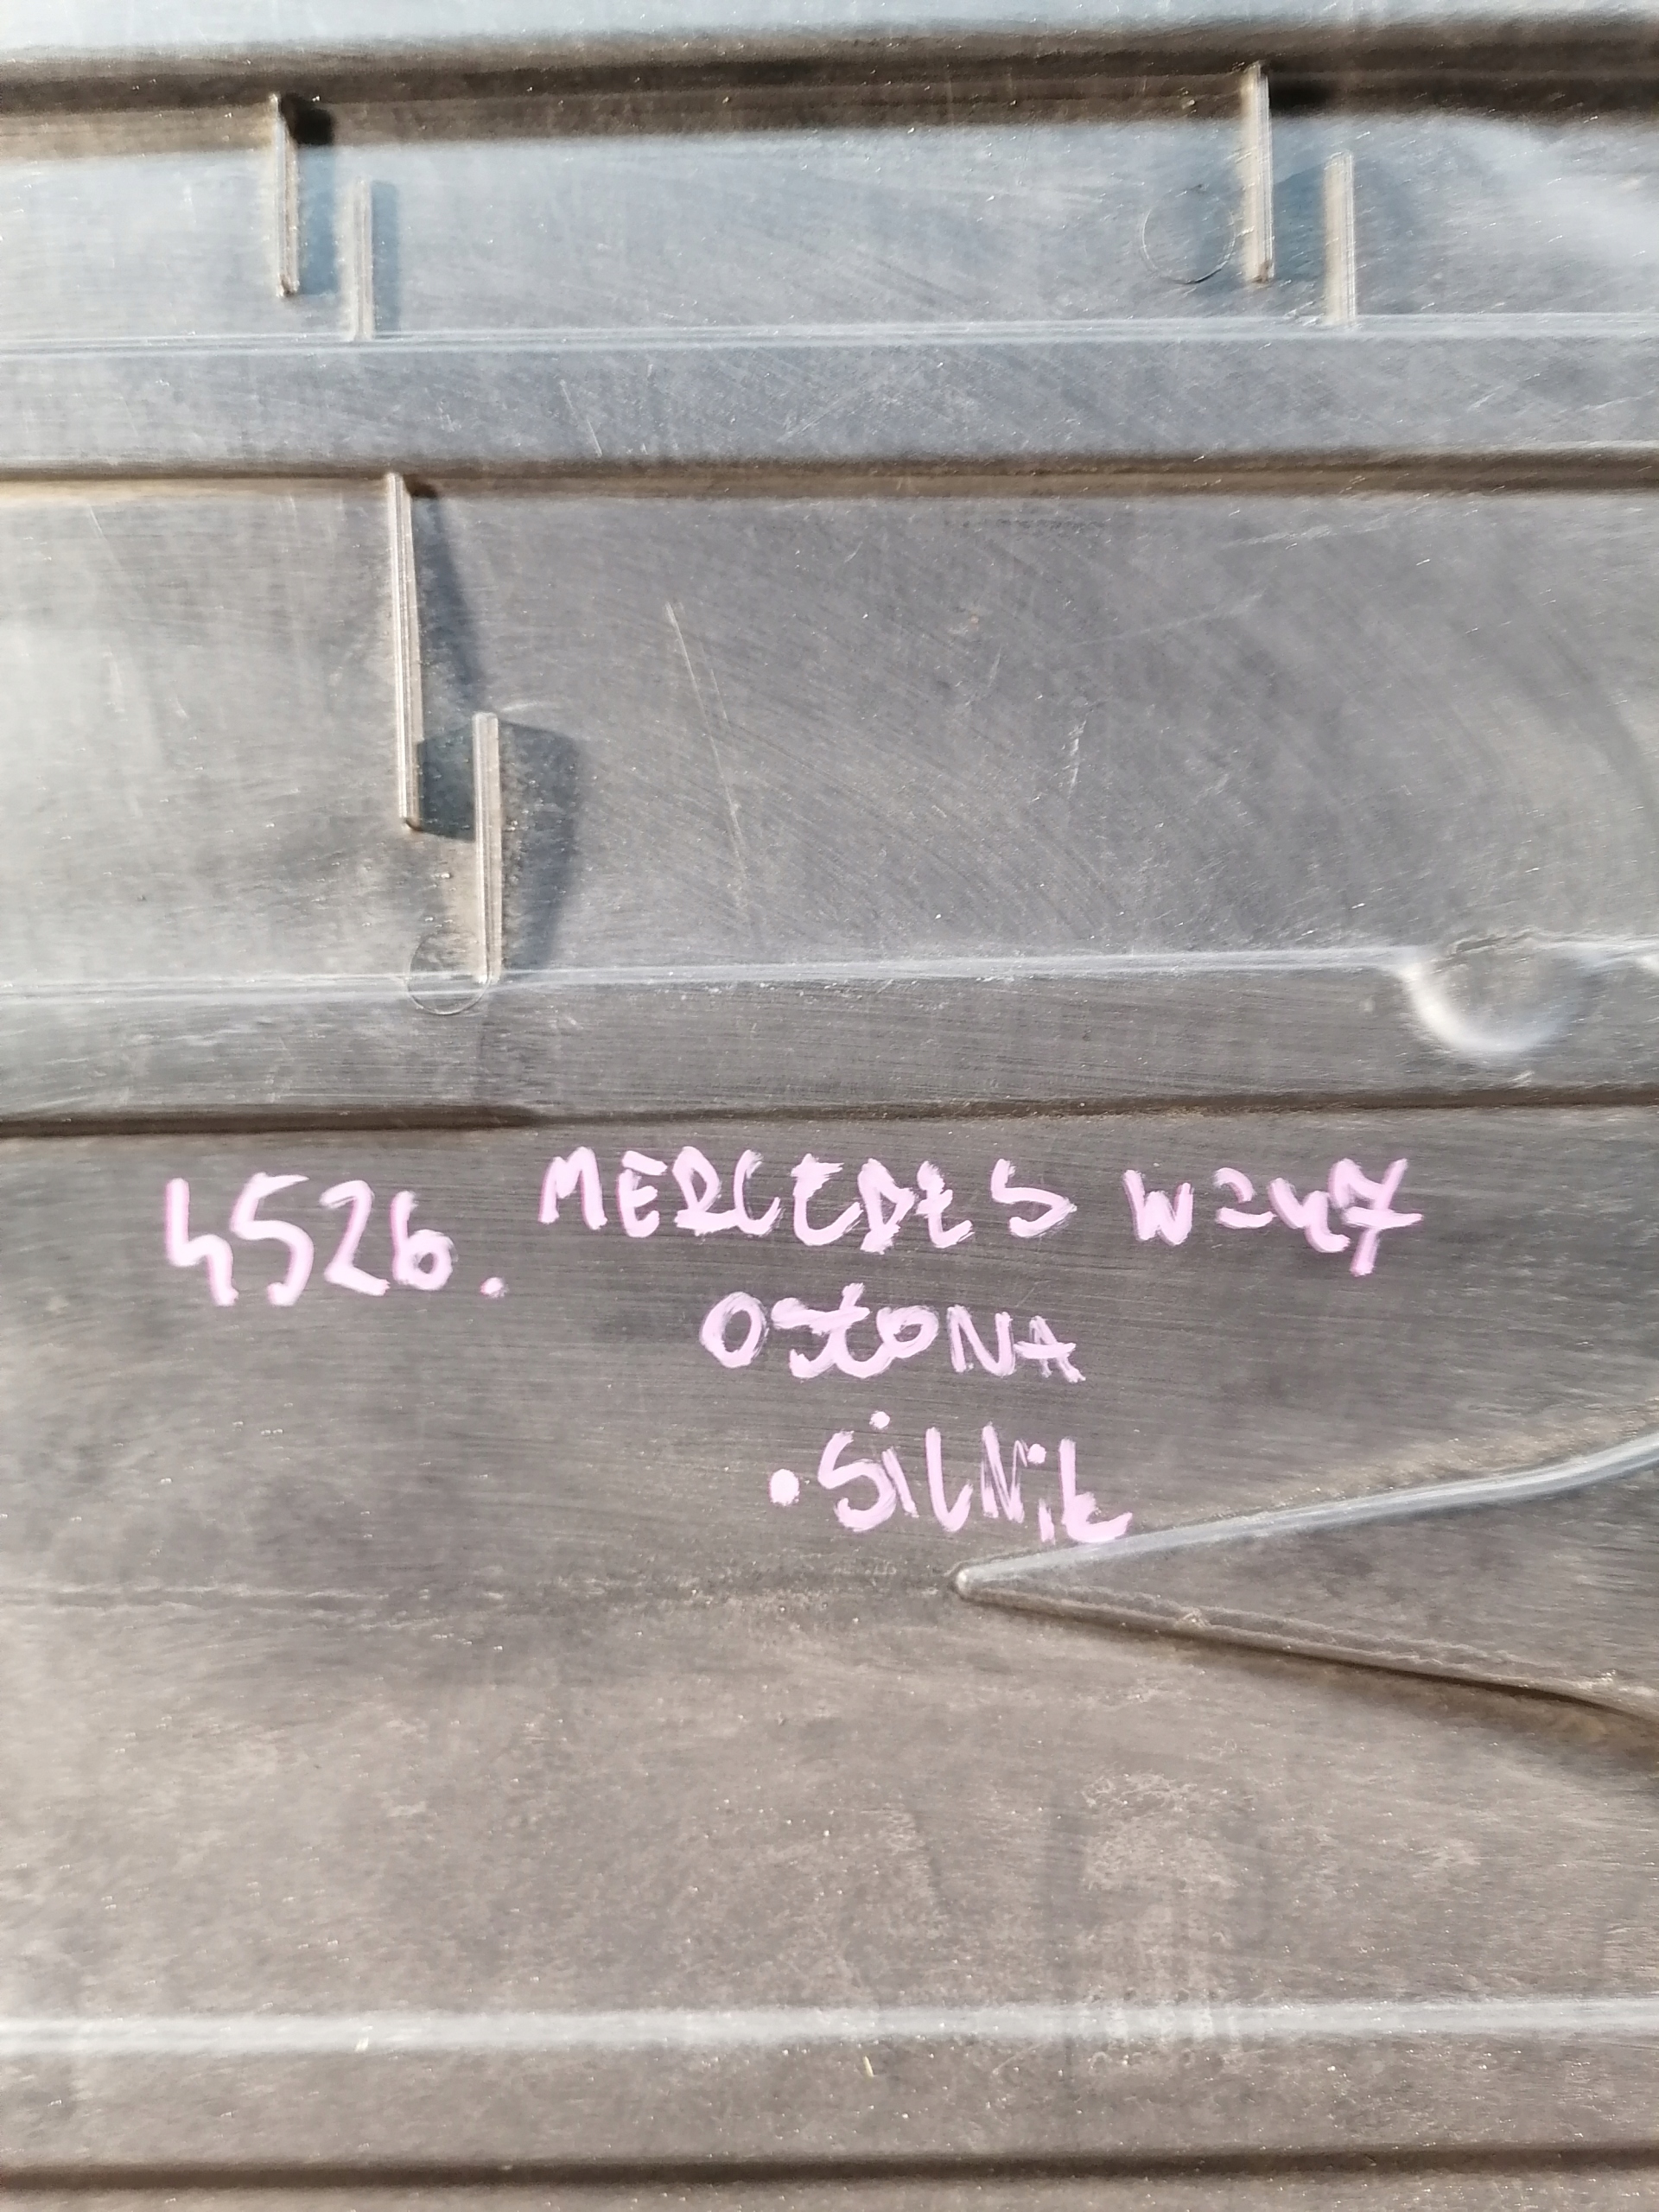 4526. MERCEDES W247
OSŁONA
.SiLNiK